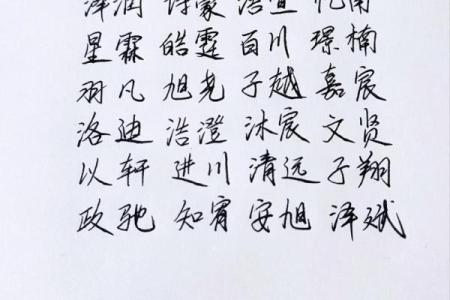 泽润 诗蒙 浩宣 忆南
星霖 皓霆 百川 璟楠
羽凡 旭尧 子越 嘉宸
洛迪 浩澄 沐宸 文贤
以轩 进川 清远 子翔
政驰 知宥 安旭 泽斌